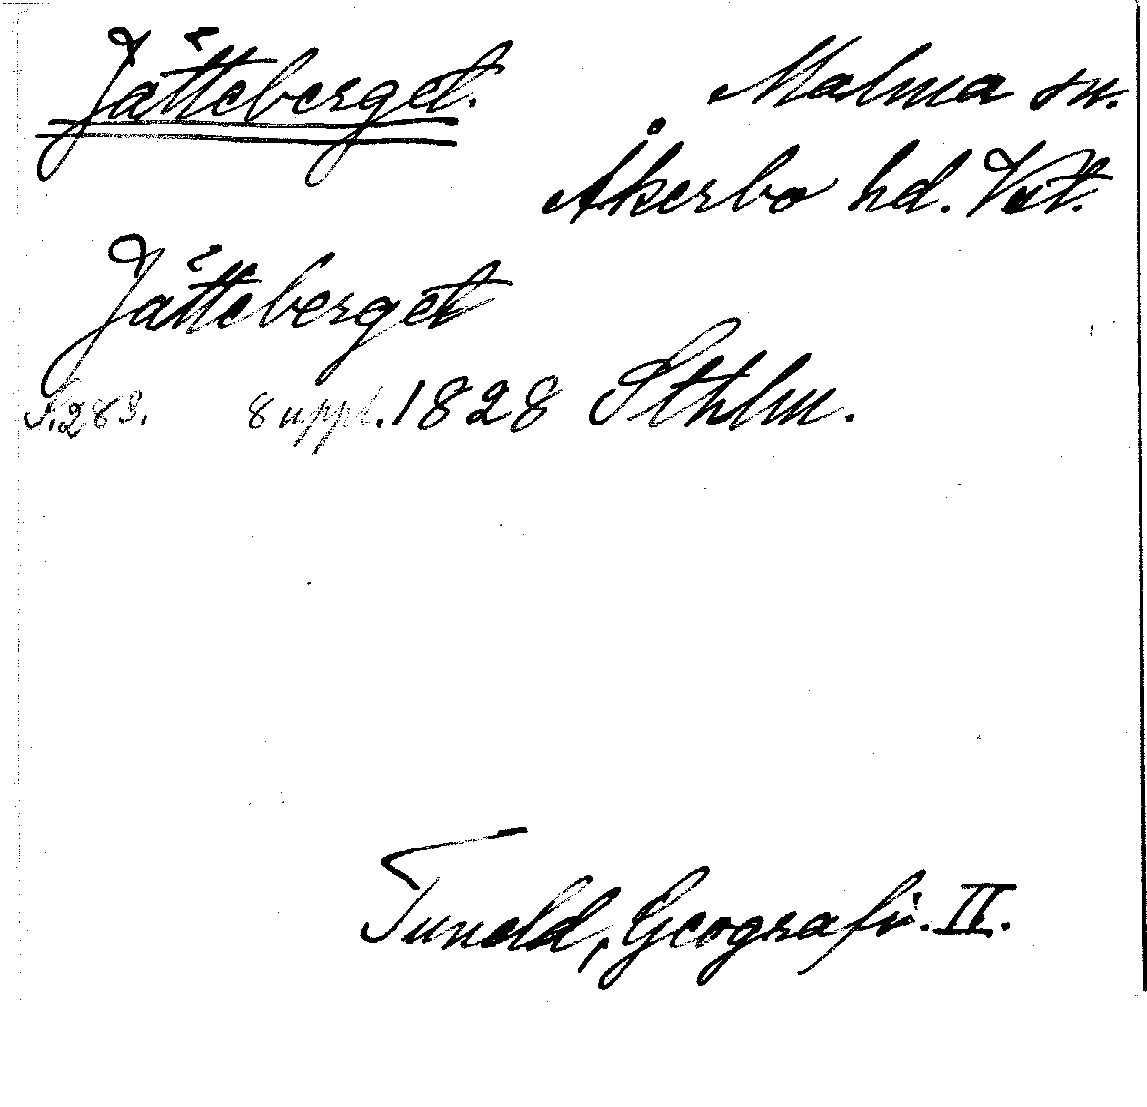 Jätteberget. Malma sn.
Åkerbo hd. Vstm.
Jätteberget
S. 283. 8 uppl. 1828 Sthlm.
Tuneld, Geografi. II.